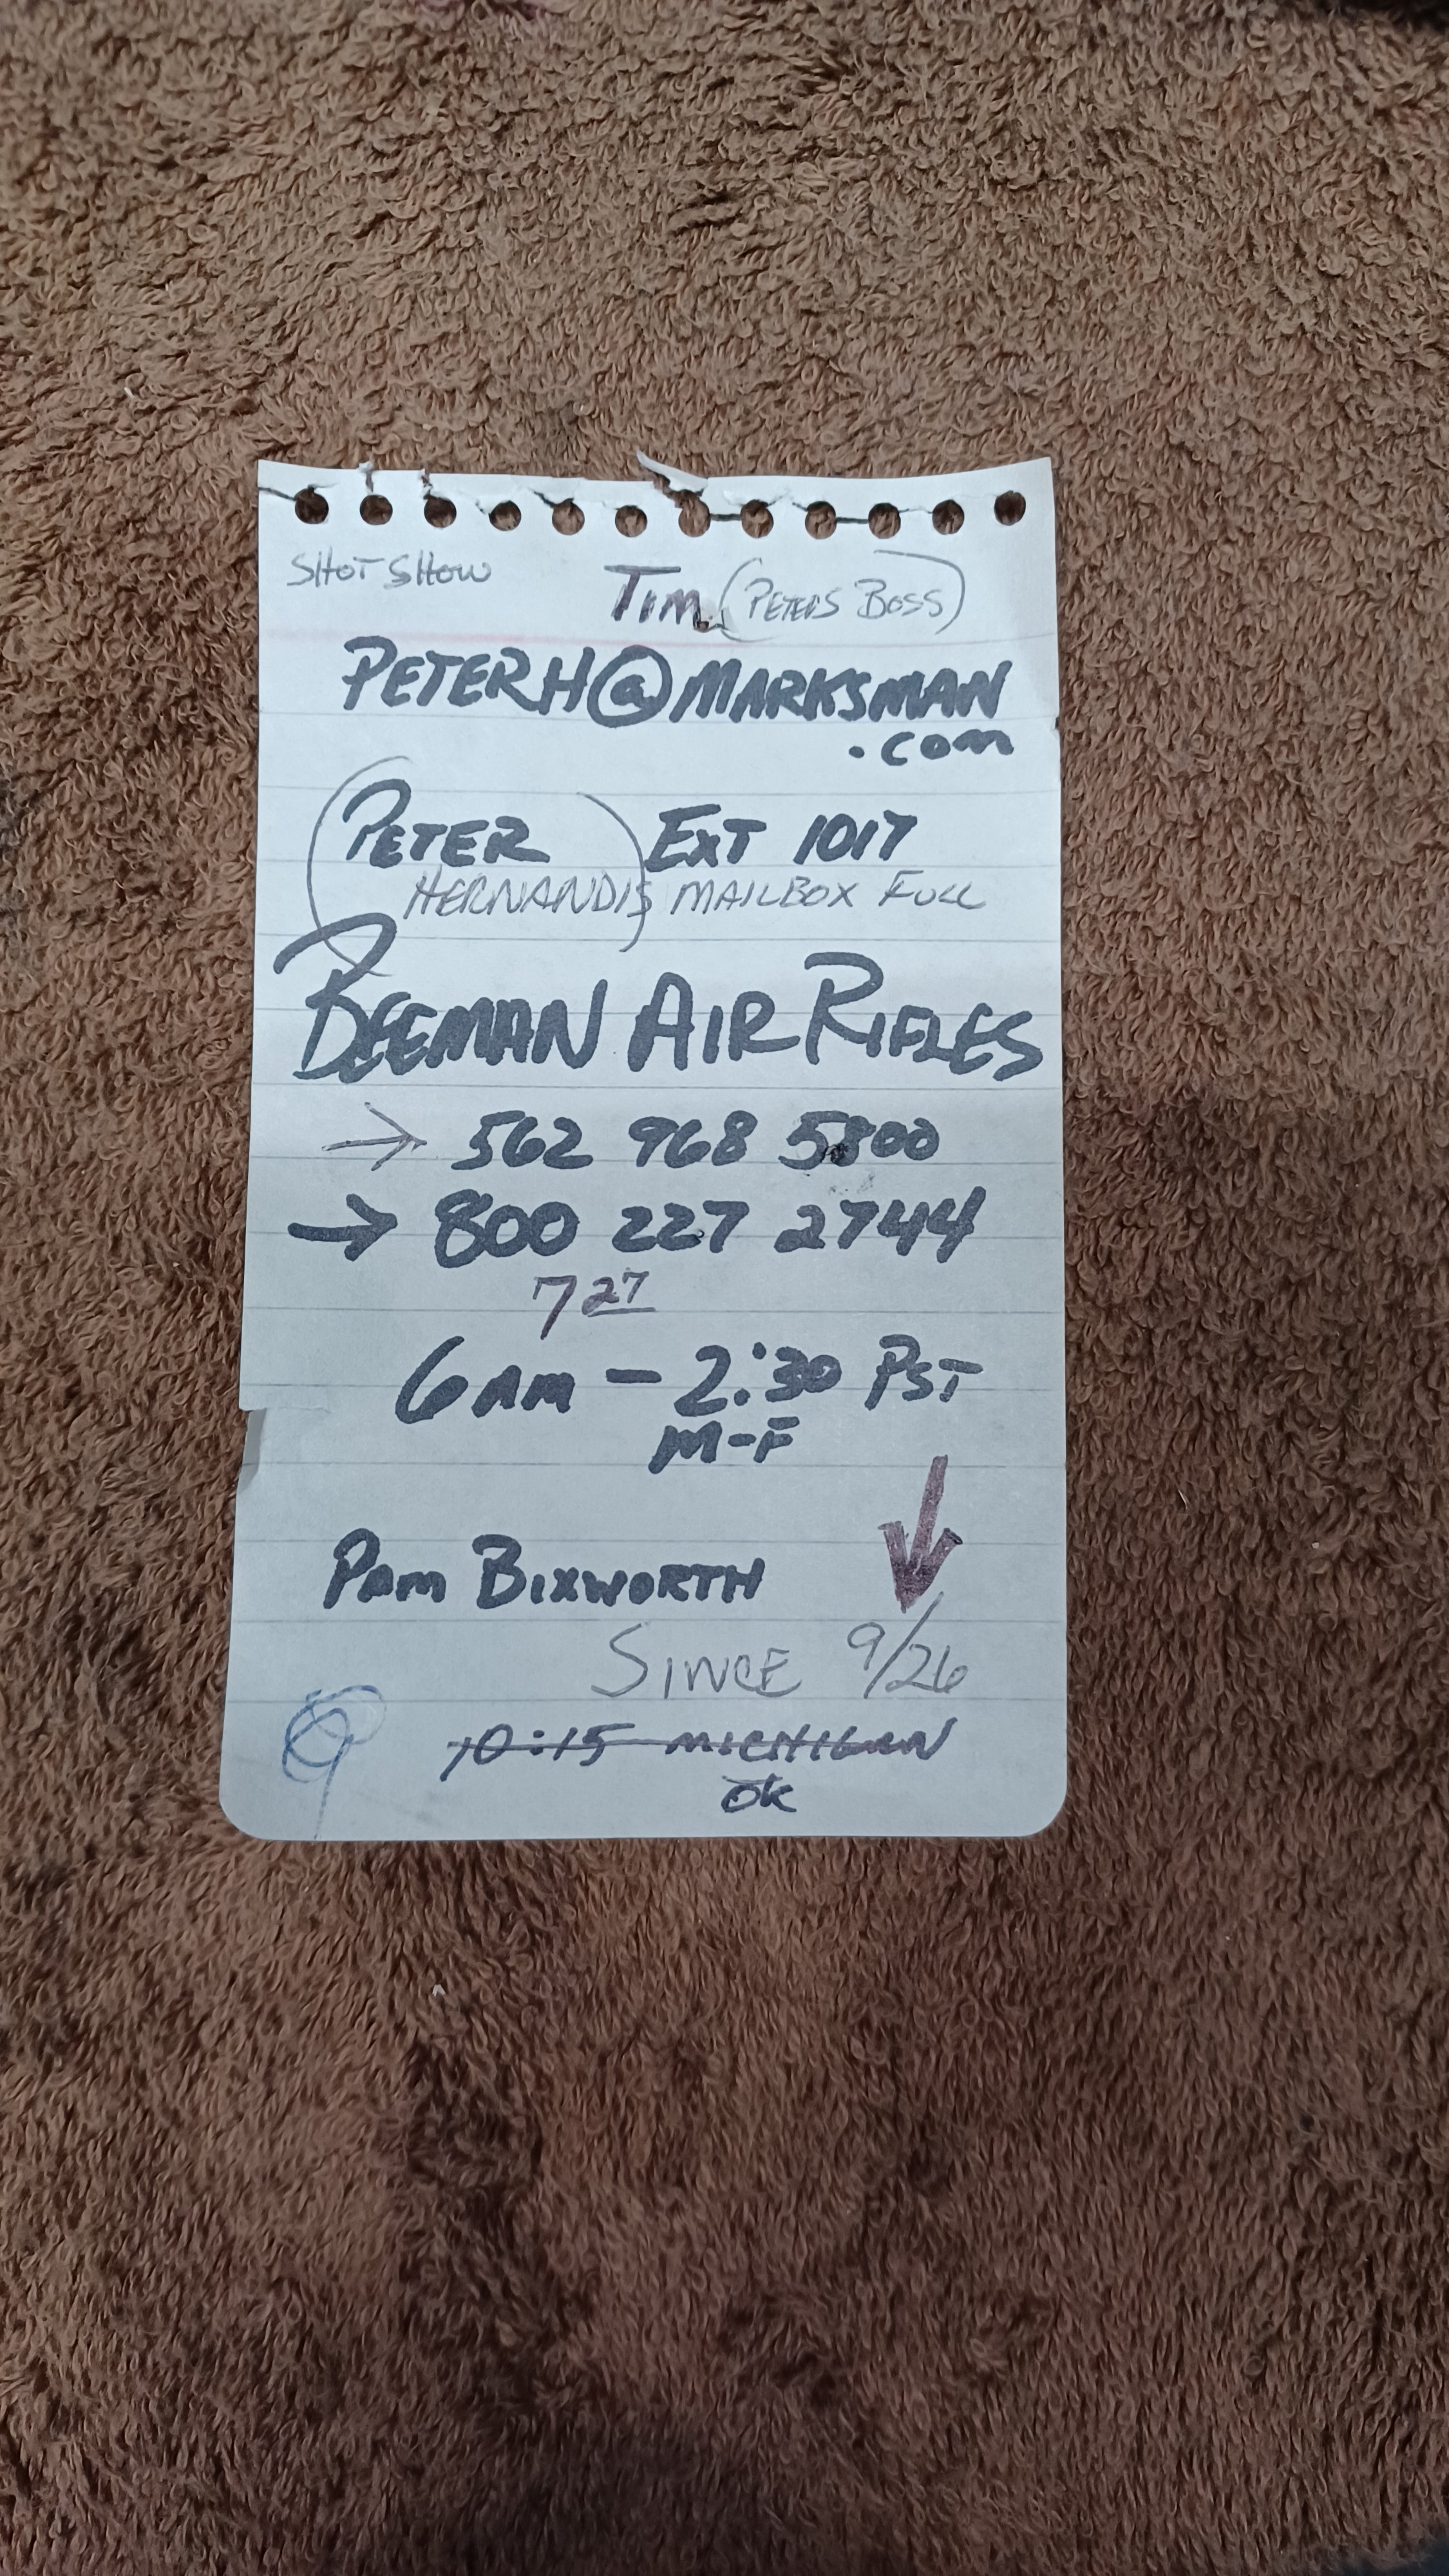 SHOT SHOW
TIM (PETERS BOSS)
PETERH@MARKSMAN
.COM
(PETER EXT 1017
HERNANDIS) MAILBOX FULL
BEEMAN AIR RIFLES
→ 562 968 5800
→ 800 227 2744
7 27
6 AM - 2:30 PST
M-F
PAM BIXWORTH
SINCE 9/26
10:15 MICHIGAN
OK